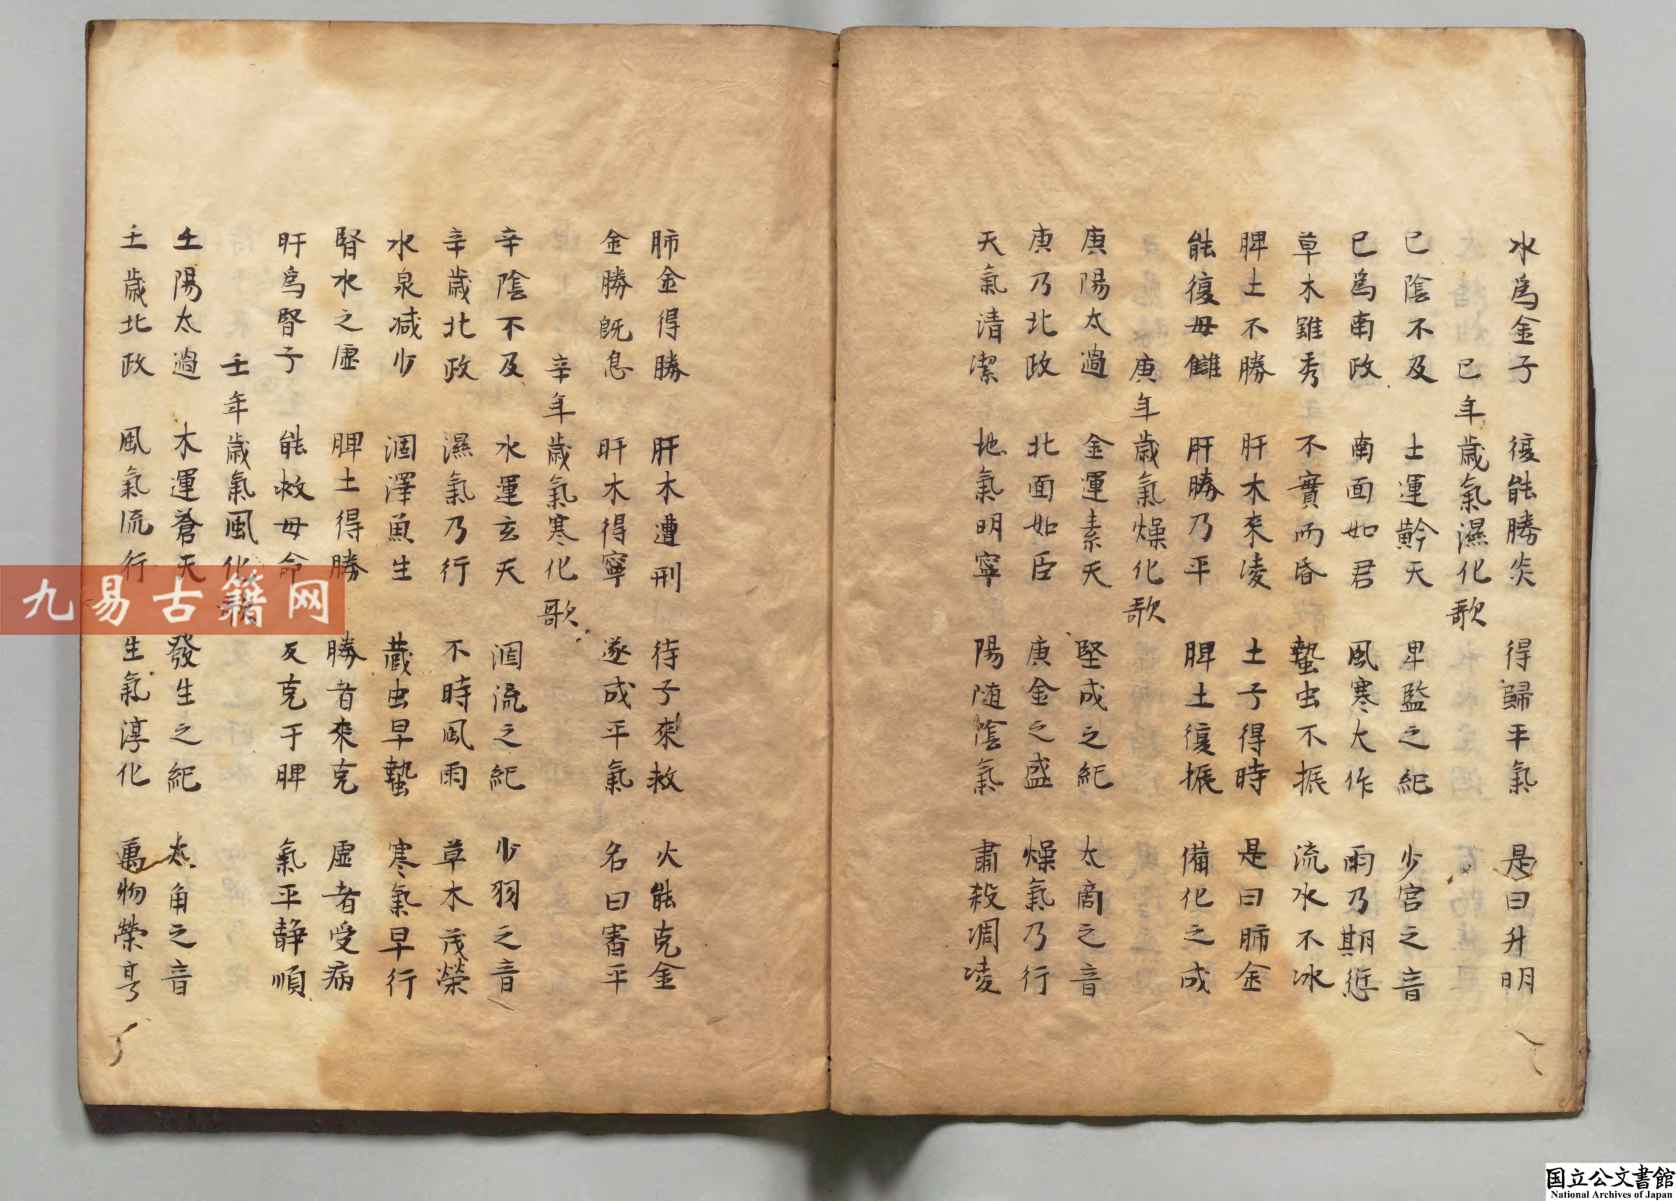 水為金子　復能勝炎　得歸平氣　是曰升明
己年歲氣濕化歌
己陰不及　土運黅天　卑監之紀　少宮之音
己為南政　南面如君　風寒大作　雨乃期愆
草木雖秀　不實而昏　蟄虫不振　流水不冰
脾土不勝　肝木來凌　土子得時　是曰肺金
能復母讎　肝勝乃平　脾土復振　備化之成
庚年歲氣燥化歌
庚陽太過　金運素天　堅成之紀　太商之音
庚乃北政　北面如臣　庚金之盛　燥氣乃行
天氣清潔　地氣明寧　陽随陰氣　肅殺凋凌
肺金得勝　肝木遭刑　待子來救　火能克金
金勝既息　肝木得寧　遂成平氣　名曰審平
辛年歲氣寒化歌
辛陰不及　水運玄天　涸流之紀　少羽之音
辛歲北政　濕氣乃行　不時風雨　草木茂榮
水泉减少　涸澤魚生　藏虫早蟄　寒氣早行
腎水之虛　脾土得勝　勝者來克　虛者受病
肝為腎子　能救母命　反克于脾　氣平静順
壬年歲氣風化歌
壬陽太過　木運蒼天　發生之紀　太角之音
壬歲北政　風氣流行　生氣淳化　萬物榮亨
九易古籍网
国立公文書館
National Archives of Japan